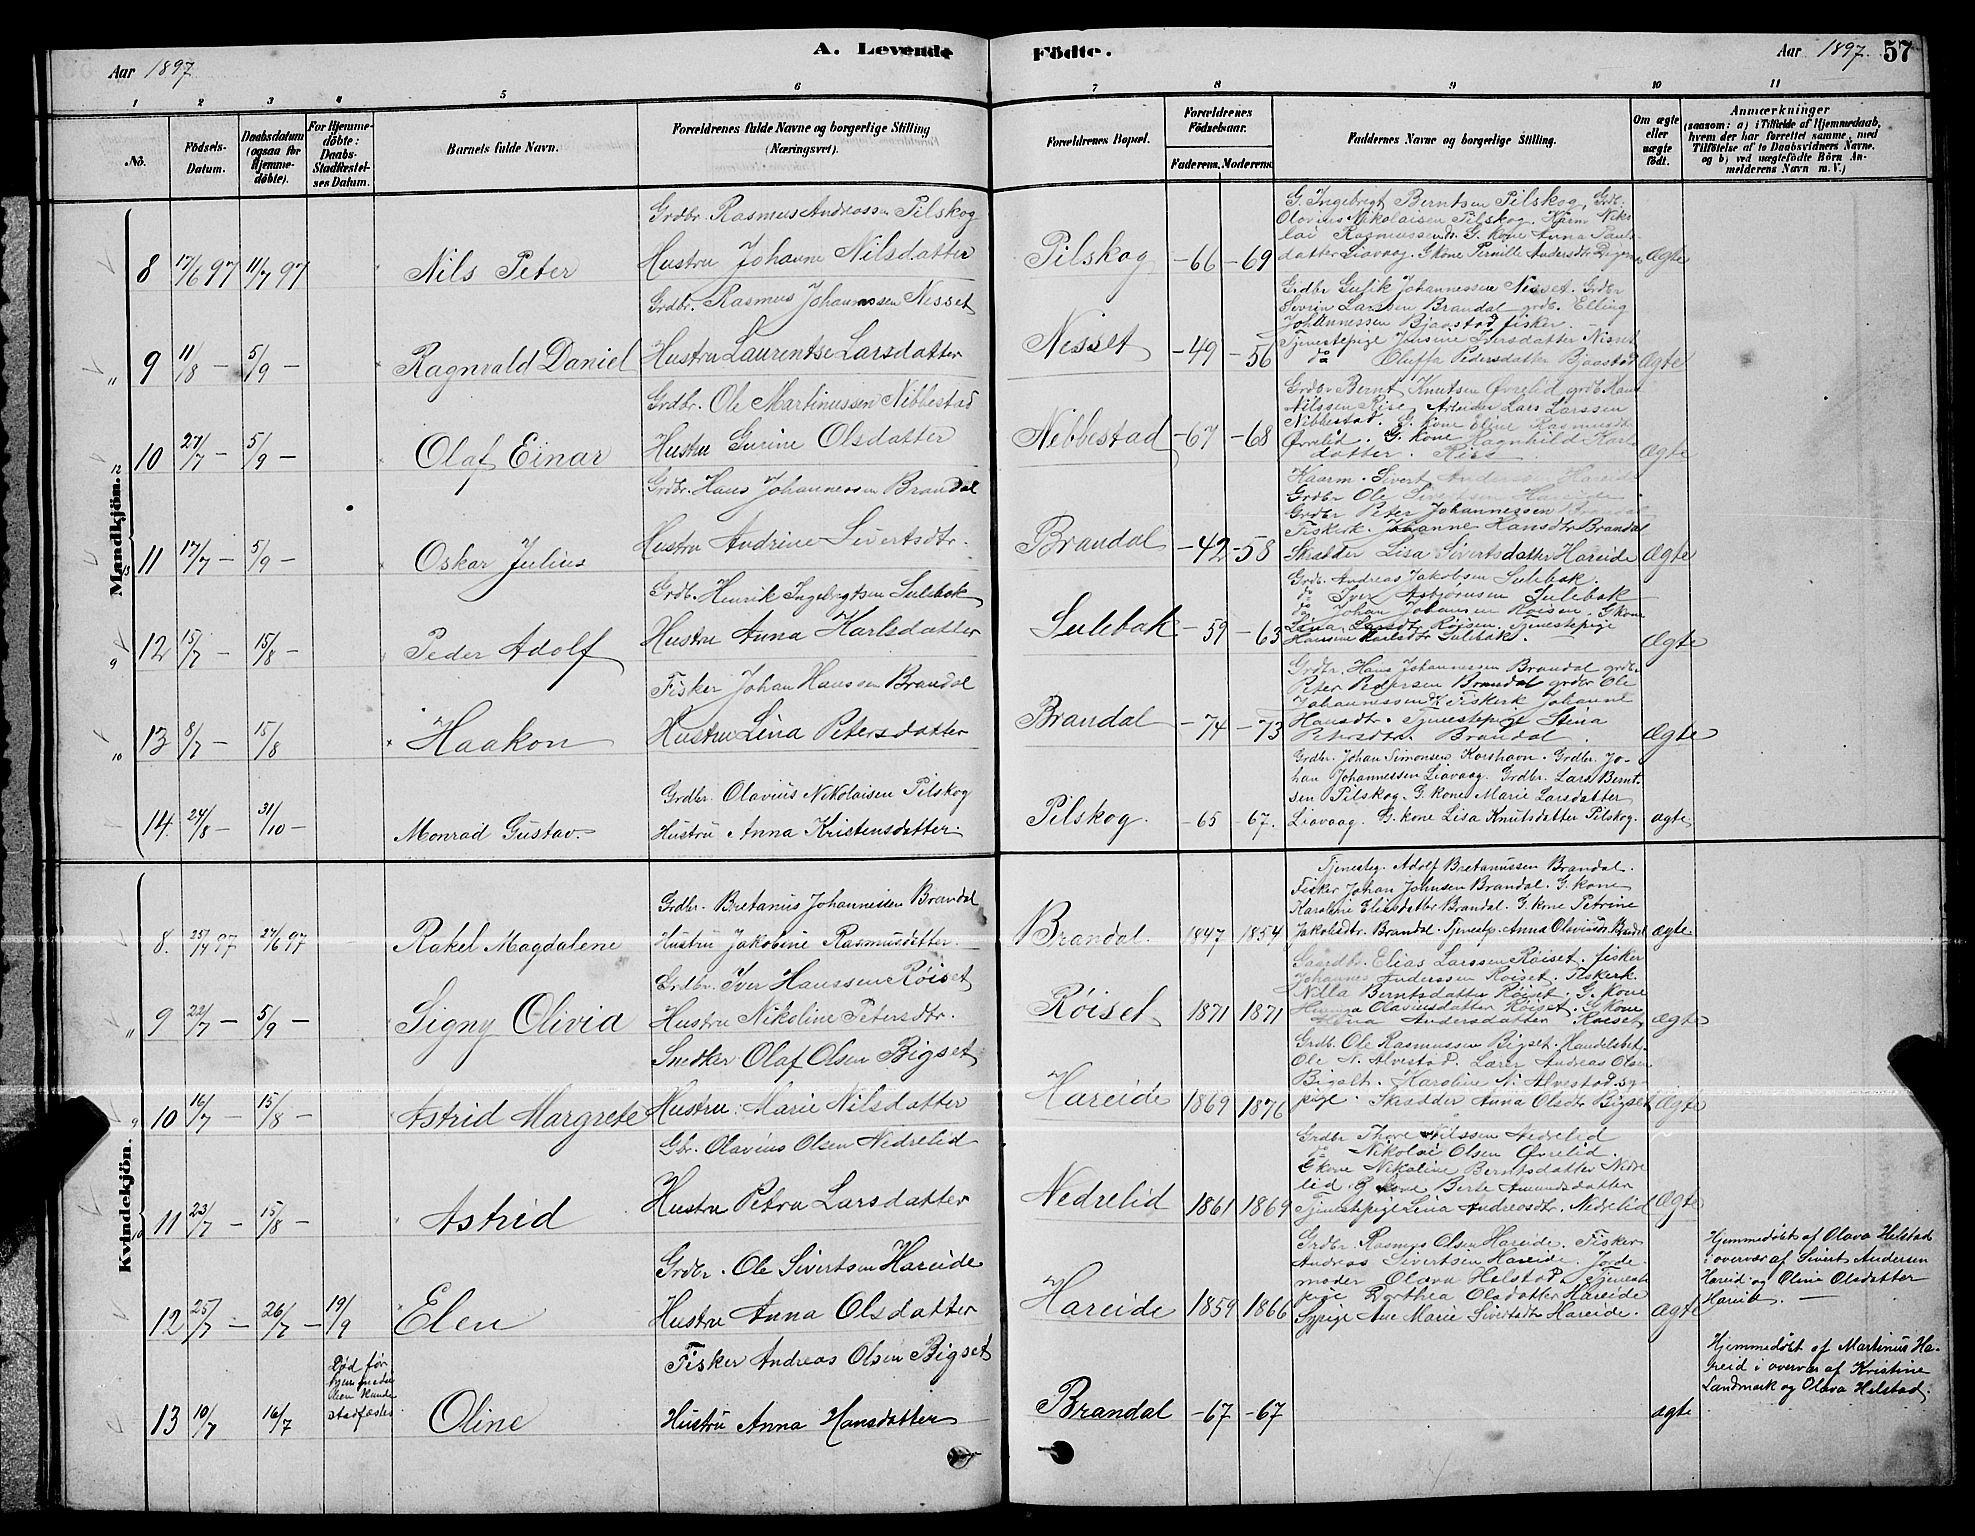 A. Levende Födte.
Aar 1897
Aar 1897. 57
1 2 3 4 5 6 7 8 9 10 11
No.
Födsels-Datum.
Daabsdatum (ogsaa for Hjemme-döbte).
For Hjemme-döbte: Daabs-Stadfæstel-ses Datum.
Barnets fulde Navn.
Forældrenes fulde Navne og borgerlige Stilling (Næringsvei).
Forældrenes Bopæl.
Forældrenes Födselsaar.
Faderens. Moderens.
Faddernes Navne og borgerlige Stilling.
Om ægte eller uægte födt.
Anmærkninger
(saasom: a) i Tilfælde af Hjemmedaab, hvem der har forrettet samme, med Tilföielse af to Daabsvidners Navne. og b) ved uægtefödte Börn An-melderens Navn m. V.)
Mandkjön.
8 17/6 97 11/7 97 Nils Peter
Grdbr. Rasmus Andreassen Pilskog
Hustru Johanne Nilsdatter
Pilskog -66 -69
G. Ingebrigt Berntsen Pilskog, Grdr.
Olavius Nikolaisen Pilskog. Kaarm Niko-
lai Rasmussen G. kone Anna Pauls-
datter Liavaag. G kone Pernille Andersdtr
Ægte
9 11/8 - 5/9 - Ragnvald Daniel
Grdbr. Rasmus Johannessen Nesset
Hustru Laurentse Larsdatter
Nesset -49 -56
Grdbr Gulik Johannessen Nesset. Grdbr
Sevrin Larsen Brandal grdb. Elling
Johannessen Bjaastad fisker.
Tjenestepige Jensine Iversdatter Nesset
do Olufta Pedersdatter Bjaastad
Ægte
10 27/7 - 5/9 - Olaf Einar
Grdbr. Ole Martinussen Nibbestad
Hustru Gurine Olsdatter
Nebbestad -67 -68
Grdbr Bernt Knutsen Øvrelid grdb Hans
Nilssen Rise, Arbeider Lars Larssen
Nibbestad. G. kone Eline Rasmusdtr
Øvrelid. G. kone Ragnhild Karls
datter. Rise
Ægte
11 17/7 - 5/9 - Oskar Julius
Grdbr. Hans Johannessen Brandal
Hustru Andrine Sivertsdtr.
Brandal -42 -58
Kaarm. Sivert Anderss Hareide
Grdbr Ole Sivertsen Hareide
Grdbr Peter Johannessen Brandal
Fiskerk. Johanne Hansdtr Brandal
Skrædder Lisa Sivertsdatter Hareide
Ægte
12 15/7 - 15/8 - Peder Adolf
Grdb. Henrik Ingebrigtsen Sulebak
Hustru Anna Karlsdatter
Sulebak -59 -63
Grdb. Andreas Jakobsen Sulebak.
do Iver Asbjørnsen Sulebak
do Johan Johansen Røisen. G kone
Lina Larsdtr Røisen. Tjenestepige
Hansine Karlsdtr Sulebak.
Ægte
13 8/7 - 15/8 Haakon
Fisker Johan Hanssen Brandal
Hustru Lina Petersdatter
Brandal -74 -73
Grdbr. Hans Johannessen Brandal grdb.
Peter Pedersen Brandal grdbr Ole
Johannessen do Fiskerk Johanne
Hansdtr. Tjenestepige Stena
Petersdtr. Brandal.
Ægte
14 24/8 - 31/10 - Monrad Gustav.
Grdbr. Olavius Nikolaisen Pilskog
Hustru Anna Kristensdatter
Pilskog. -65 -67.
Grdbr. Johan Simonsen Korshavn. Grdbr. Jo-
han Johannessen Liavaag. Grdbr. Lars Bernt-
sen Pilskog. G. kone Marie Larsdatter
Liavaag. G. kone Lisa Knutsdatter Pilskog.
ægte
Kvindekjön.
8. 25/4 97 27/6 97 Rakel Magdalene
Grdbr. Bretanus Johannessen Brandal
Hustru Jakobine Rasmusdatter.
Brandal. 1847 1854
Tjenesteg. Adolf Bretanussen Brandal.
Fisker Johan Johnsen Brandal. G. kone
Karoline Eliasdatter Brandal. G. kone Petrine
Jakobsdtr. Brandal. Tjenestp. Anna Olaviusdr. Brandal
ægte
9 22/7 - 5/9 - Signy Olivia
Grdbr. Iver Hanssen Røiset
Hustru Nikoline Petersdtr.
Røiset 1871 1871
Gaardbr. Elias Larssen Røiset. fisker
Johannes Anderssen Røiset. Fiskerk.
Nilla Berntsdatter Røiset. G. kone
Olaviusdatter Røiset. G. kone
Andersdatter Røiset
Ægte
10 16/7 - 15/8 - Astrid Margrete
Snedker Olaf Olsen Bigset
Hustru Marie Nilsdatter
Hareide 1869 1876
Grdb. Ole Rasmussen Bigset. Handelsbet.
Ole N. Alvestad. Lærer Andreas Olsen
Bigset. Karoline N. Alvestad. sy-
pige. Skrædder Anna Olsdtr Bigset
Ægte
11 23/7 - 15/8 - Astrid
Gbr. Olavius Olsen Nedrelid
Hustru Petra Larsdatter
Nedrelid 1861 1869
Grdbr Thore Nilssen Nedrelid
do Nikolai Olsen Øvrelid.
G kone Nikoline Berntsdatter Nedre
lid. G kone Berte Amundsdatter
Tjenestepige Lina Andreasdtr. Nedrelid
Ægte
12 25/7 - 26/7 - 19/9 Elen
Grdbr. Ole Sivertsen Hareide
Hustru Anna Olsdatter
Hareide 1859 1866
Grdbr. Rasmus Olsen Hareide. Fisker
Andreas Sivertsen Hareide. Jorde
moder Olava Helstad. Tjenest
pige Dorthea Olsdatter Hareide
Sypige Ane Marie Sivertsdtr Hareide.
Ægte
Hjemmedøbt af Olava Helstad
i overvær af Sivert Andersen
Hareid og Oline Olsdatter
Hareide. —
13 10/7 16/7
Død før
hjemmedaa
ben kunde
stadfæstes.
Oline
Fisker Andreas Olsen Bigset
Hustru Anna Hansdatter
Brandal -67 -67
ægte
Hjemmedøbt af Martinus Ha-
reid i overvær af Kristine
Landmark og Olava Helstad.